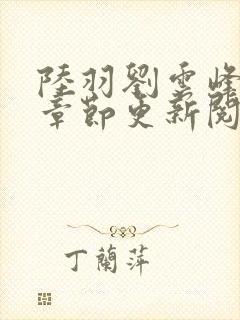 陸羽劉雲峰
章節更新閱
丁蘭萍